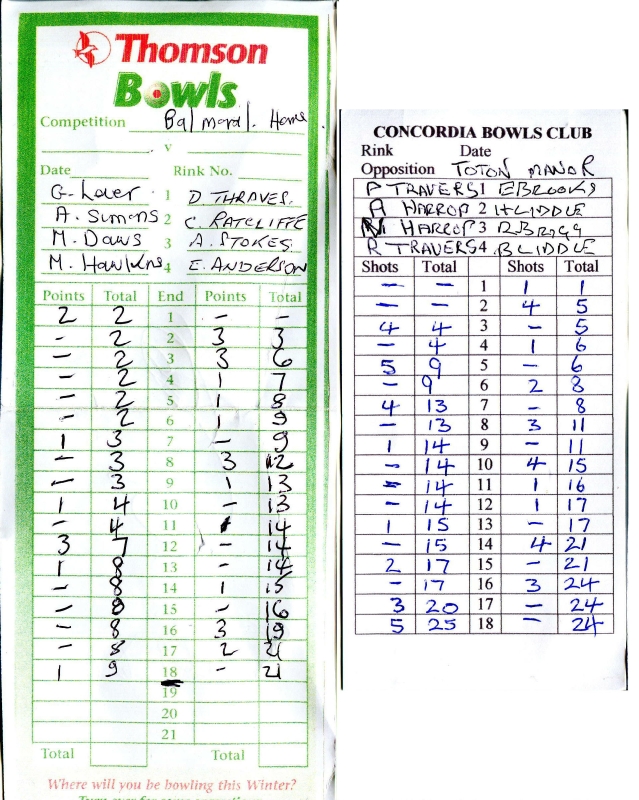 Thomson
Bowls
Competition Balmoral. Home
v
Date Rink No.
1 D. THRAVES.
A. Simons 2 C. RATCLIFFE
M. Daws 3 A. STOKES.
M. Hawkns 4 E. ANDERSON
Points Total End Points Total
2 2 1 - -
- 2 2 3 3
- 2 3 3 6
- 2 4 1 7
- 2 5 1 8
- 2 6 1 9
1 3 7 - 9
- 3 8 3 12
- 3 9 1 13
1 4 10 - 13
- 4 11 14
3 7 12 - 14
1 8 13 - 14
- 8 14 1 15
- 8 15 - 16
- 8 16 3 19
- 8 17 2 21
1 9 18 - 21
19
20
21
Total Total
Where will you be bowling this Winter?
CONCORDIA BOWLS CLUB
Rink Date
Opposition TOTON MANOR
P TRAVERS 1 E BROOKS
A HARROP 2 H LIDDLE
M HARROP 3 R BRIGG
R TRAVERS 4 B LIDDLE
Shots Total Shots Total
- - 1 1 1
- - 2 4 5
4 4 3 - 5
- 4 4 1 6
5 9 5 - 6
- 9 6 2 8
4 13 7 - 8
- 13 8 3 11
1 14 9 - 11
- 14 10 4 15
- 14 11 1 16
- 14 12 1 17
1 15 13 - 17
- 15 14 4 21
2 17 15 - 21
- 17 16 3 24
3 20 17 - 24
5 25 18 - 24